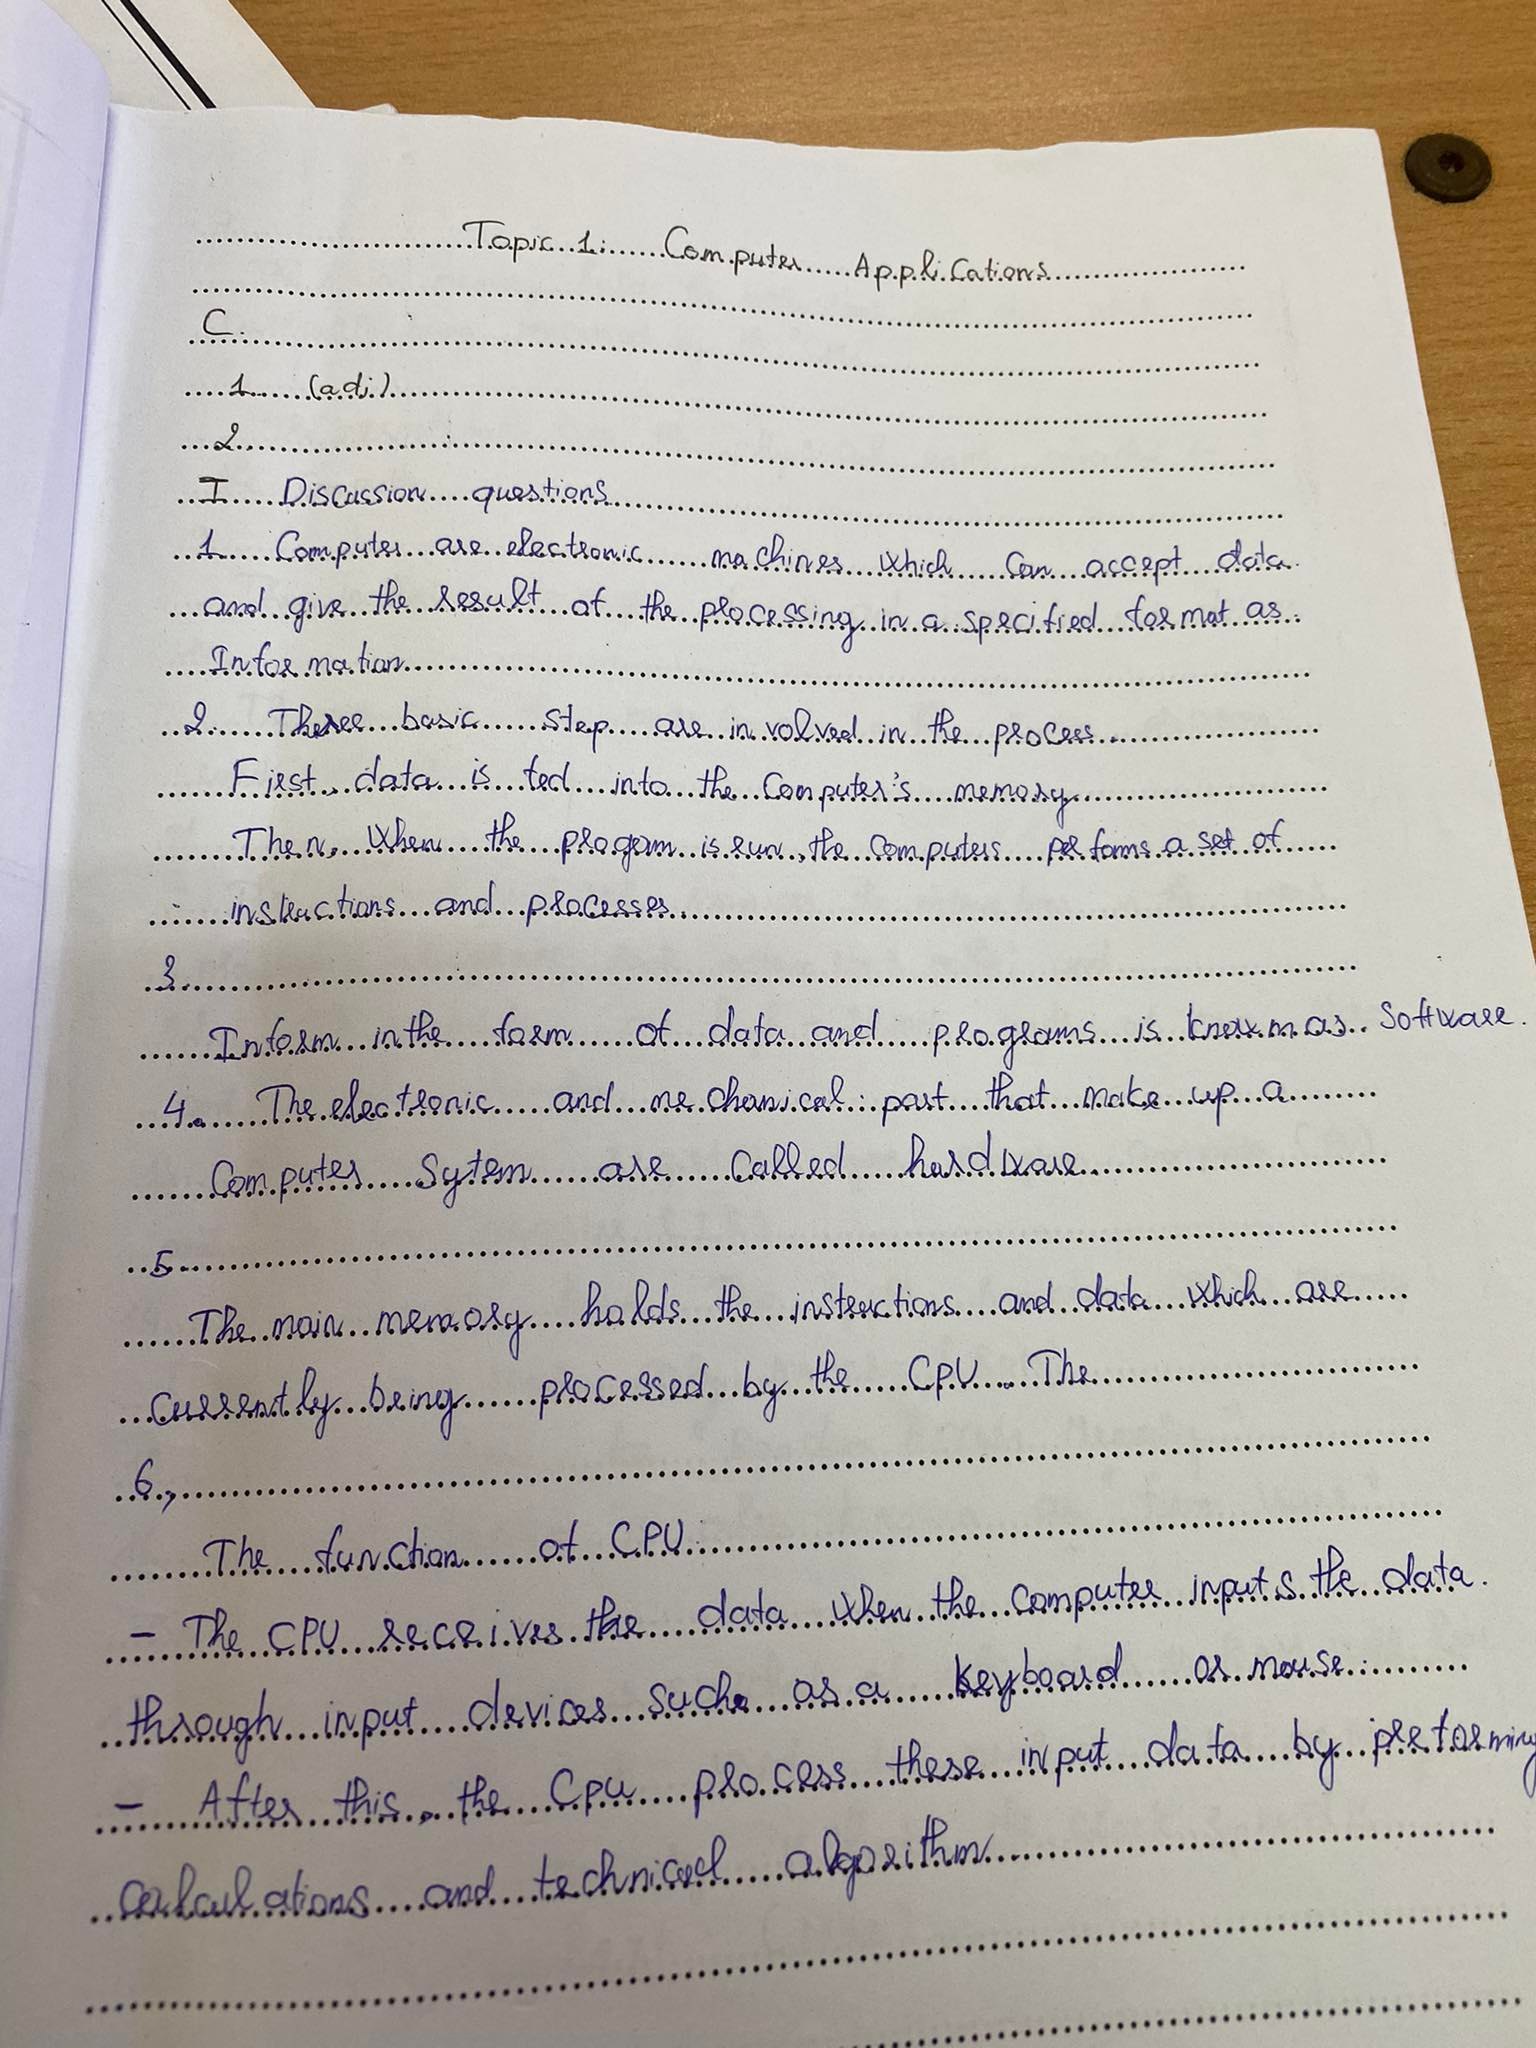 Topic 1: Computer Applications
C.
1 (adj)
2
I Discussion questions
1 Computer are electronic machines which can accept data
and give the result of the processing in a specified format as
Information
2. Theree basic step are involved in the process.
First, data is fed into the computer's memory
Then, when the progam is run, the computers performs a set of
instructions and processes
3.
Inform in the form of data and programs is known as Software.
4. The electronic and mechanical part that make up a
computer Sytem are called hardware
5.
The main memory holds the instructions and data which are
currently being processed by the CPU. The
6,
The function of CPU:
- The CPU receives the data when the computer inputs the data
through input devices such as a keyboard or mouse.
- After this, the Cpu process these input data by preforming
calculations and technical algorithm